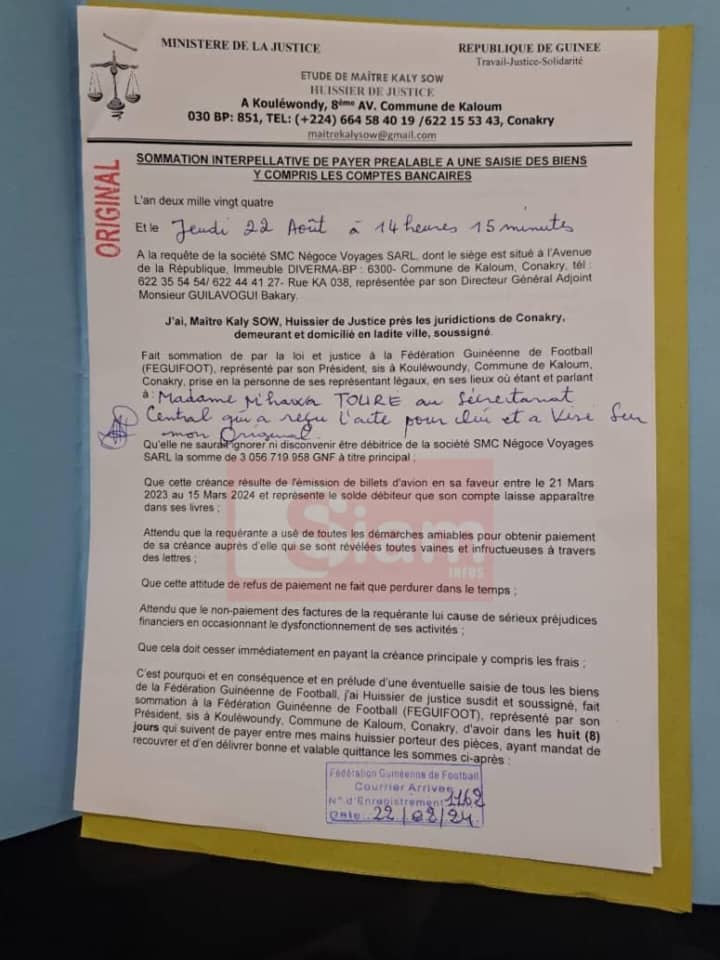 MINISTERE DE LA JUSTICE
REPUBLIQUE DE GUINEE
Travail-Justice-Solidarité
ETUDE DE MAÎTRE KALY SOW
HUISSIER DE JUSTICE
A Kouléwondy, 8ème AV. Commune de Kaloum
030 BP: 851, TEL: (+224) 664 58 40 19 /622 15 53 43, Conakry
maitrekalysow@gmail.com
ORIGINAL
SOMMATION INTERPELLATIVE DE PAYER PREALABLE A UNE SAISIE DES BIENS
Y COMPRIS LES COMPTES BANCAIRES
L'an deux mille vingt quatre
Et le Jeudi 22 Août à 14 heures 15 minutes
A la requête de la société SMC Négoce Voyages SARL, dont le siège est situé à l'Avenue
de la République, Immeuble DIVERMA-BP : 6300- Commune de Kaloum, Conakry, tél :
622 35 54 54/ 622 44 41 27- Rue KA 038, représentée par son Directeur Général Adjoint
Monsieur GUILAVOGUI Bakary.
J'ai, Maître Kaly SOW, Huissier de Justice près les juridictions de Conakry,
demeurant et domicilié en ladite ville, soussigné.
Fait sommation de par la loi et justice à la Fédération Guinéenne de Football
(FEGUIFOOT), représenté par son Président, sis à Kouléwoundy, Commune de Kaloum,
Conakry, prise en la personne de ses représentant légaux, en ses lieux où étant et parlant
à : Madame M'hawa TOURE au Sécretariat
Central qui a reçu l'acte pour lui et a Visé Sur
mon Original.
Qu'elle ne saurait ignorer ni disconvenir être débitrice de la société SMC Négoce Voyages
SARL la somme de 3 056 719 958 GNF à titre principal ;
Que cette créance résulte de l'émission de billets d'avion en sa faveur entre le 21 Mars
2023 au 15 Mars 2024 et représente le solde débiteur que son compte laisse apparaître
dans ses livres ;
Attendu que la requérante a usé de toutes les démarches amiables pour obtenir paiement
de sa créance auprès d'elle qui se sont révélées toutes vaines et infructueuses à travers
des lettres ;
Que cette attitude de refus de paiement ne fait que perdurer dans le temps ;
Attendu que le non-paiement des factures de la requérante lui cause de sérieux préjudices
financiers en occasionnant le dysfonctionnement de ses activités ;
Que cela doit cesser immédiatement en payant la créance principale y compris les frais ;
C'est pourquoi et en conséquence et en prélude d'une éventuelle saisie de tous les biens
de la Fédération Guinéenne de Football, j'ai Huissier de justice susdit et soussigné, fait
sommation à la Fédération Guinéenne de Football (FEGUIFOOT), représenté par son
Président, sis à Kouléwoundy, Commune de Kaloum, Conakry, d'avoir dans les huit (8)
jours qui suivent de payer entre mes mains huissier porteur des pièces, ayant mandat de
recouvrer et d'en délivrer bonne et valable quittance les sommes ci-après :
Siam
INFOS
Fédération Guinéenne de Football
Courrier Arrivée
N° d'Enregistrement 1162
Date : 22/08/24.